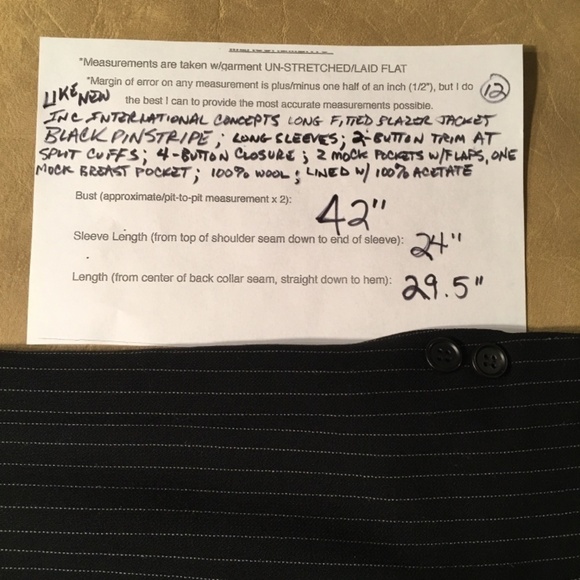 *Measurements are taken w/garment UN-STRETCHED/LAID FLAT
*Margin of error on any measurement is plus/minus one half of an inch (1/2"), but I do
12
LIKE NEW
the best I can to provide the most accurate measurements possible.
INC INTERNATIONAL CONCEPTS LONG FITTED BLAZER JACKET
BLACK PINSTRIPE; LONG SLEEVES; 2-BUTTON TRIM AT
SPLIT CUFFS; 4-BUTTON CLOSURE; 2 MOCK POCKETS W/FLAPS, ONE
MOCK BREAST POCKET; 100% WOOL; LINED W/ 100% ACETATE
Bust (approximate/pit-to-pit measurement x 2): 42"
Sleeve Length (from top of shoulder seam down to end of sleeve): 24"
Length (from center of back collar seam, straight down to hem): 29.5"